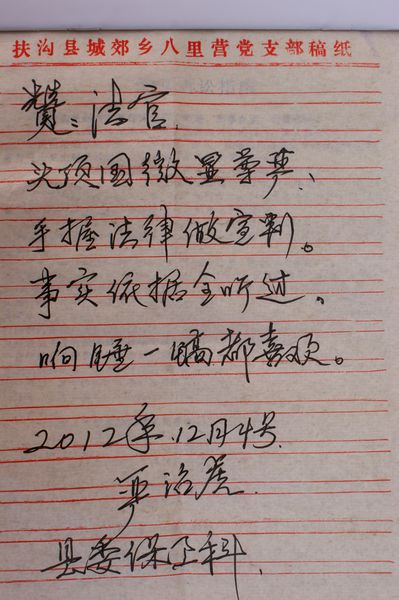 扶沟县城郊乡八里营党支部稿纸
赞：法官
头顶国徽显尊严、
手握法律做宣判。
事实依据全听过、
响锤一敲都喜欢。
2012年.12月4号.
治虎
县委保卫科